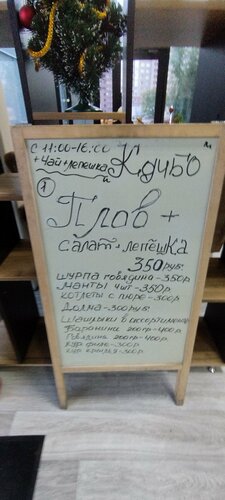 с 11:00-16:00
+чай+лепешка Комбо
1 и
Плов +
салат + лепёшка
350 руб.
шурпа говядина-350р.
манты 4шт-350р.
котлеты с пюре-300р.
Долма-300руб.
Шашлыки в ассортименте
Баранина 200гр-400р.
Говядина 200гр-400р.
кур филе-300р.
кур крылья-300р.